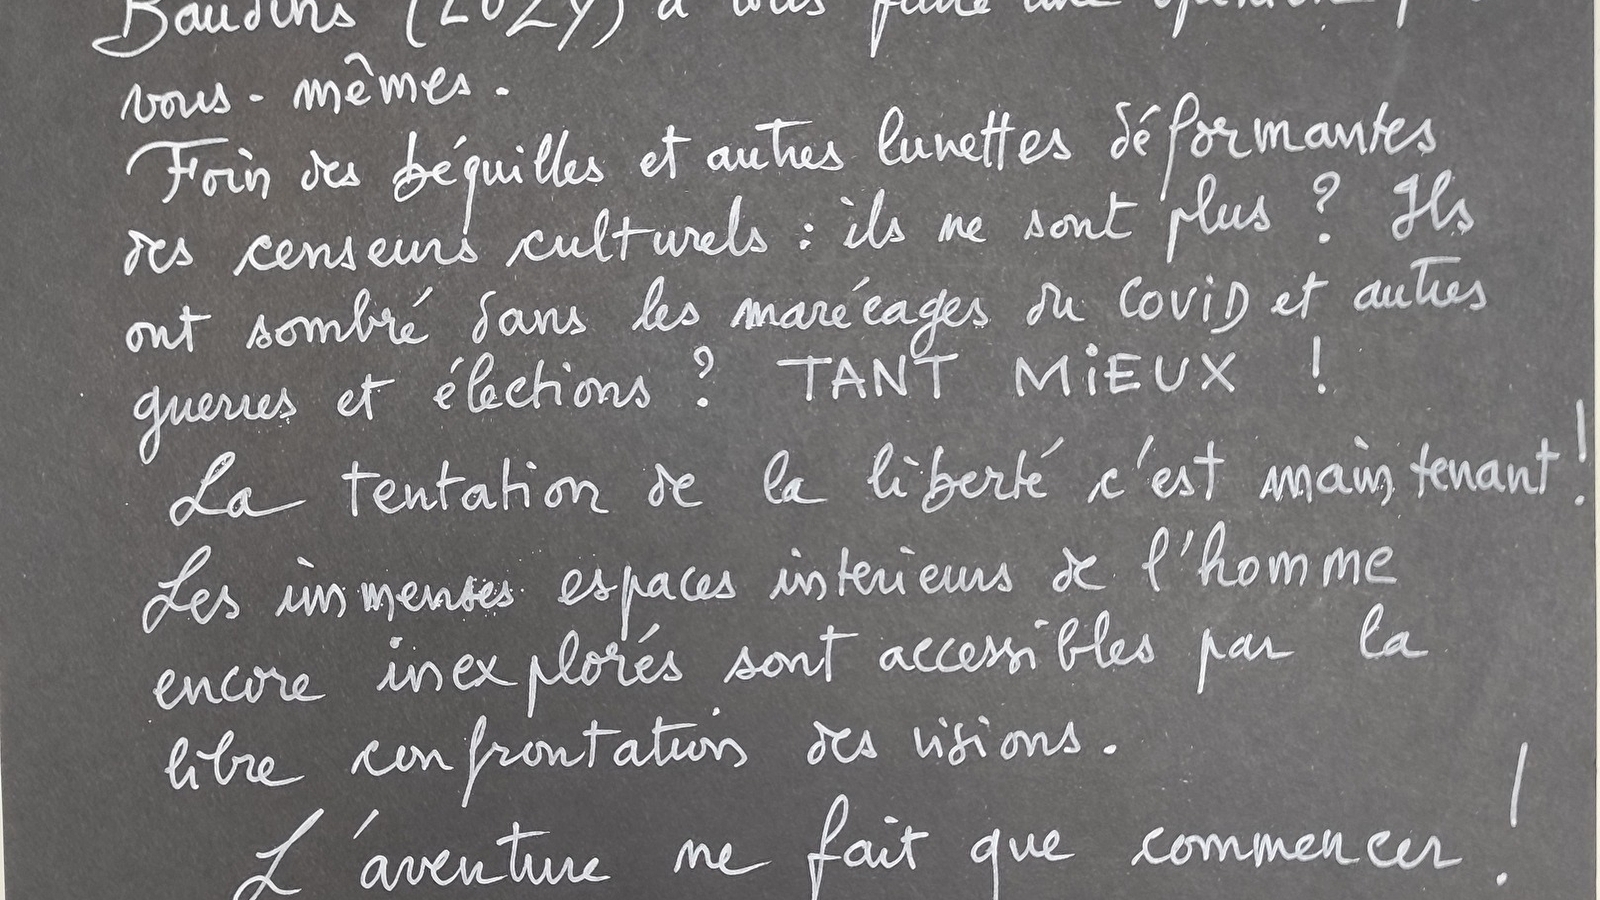 Baudins (2024) à vous faire une
vous-mêmes.
Foin des béquilles et autres lunettes déformantes
des censeurs culturels : ils ne sont plus ? Ils
ont sombré dans les marécages du COVID et autres
guerres et élections ? TANT MIEUX !
La tentation de la liberté c'est maintenant !
Les immenses espaces intérieurs de l'homme
encore inexplorés sont accessibles par la
libre confrontation des visions.
L'aventure ne fait que commencer !